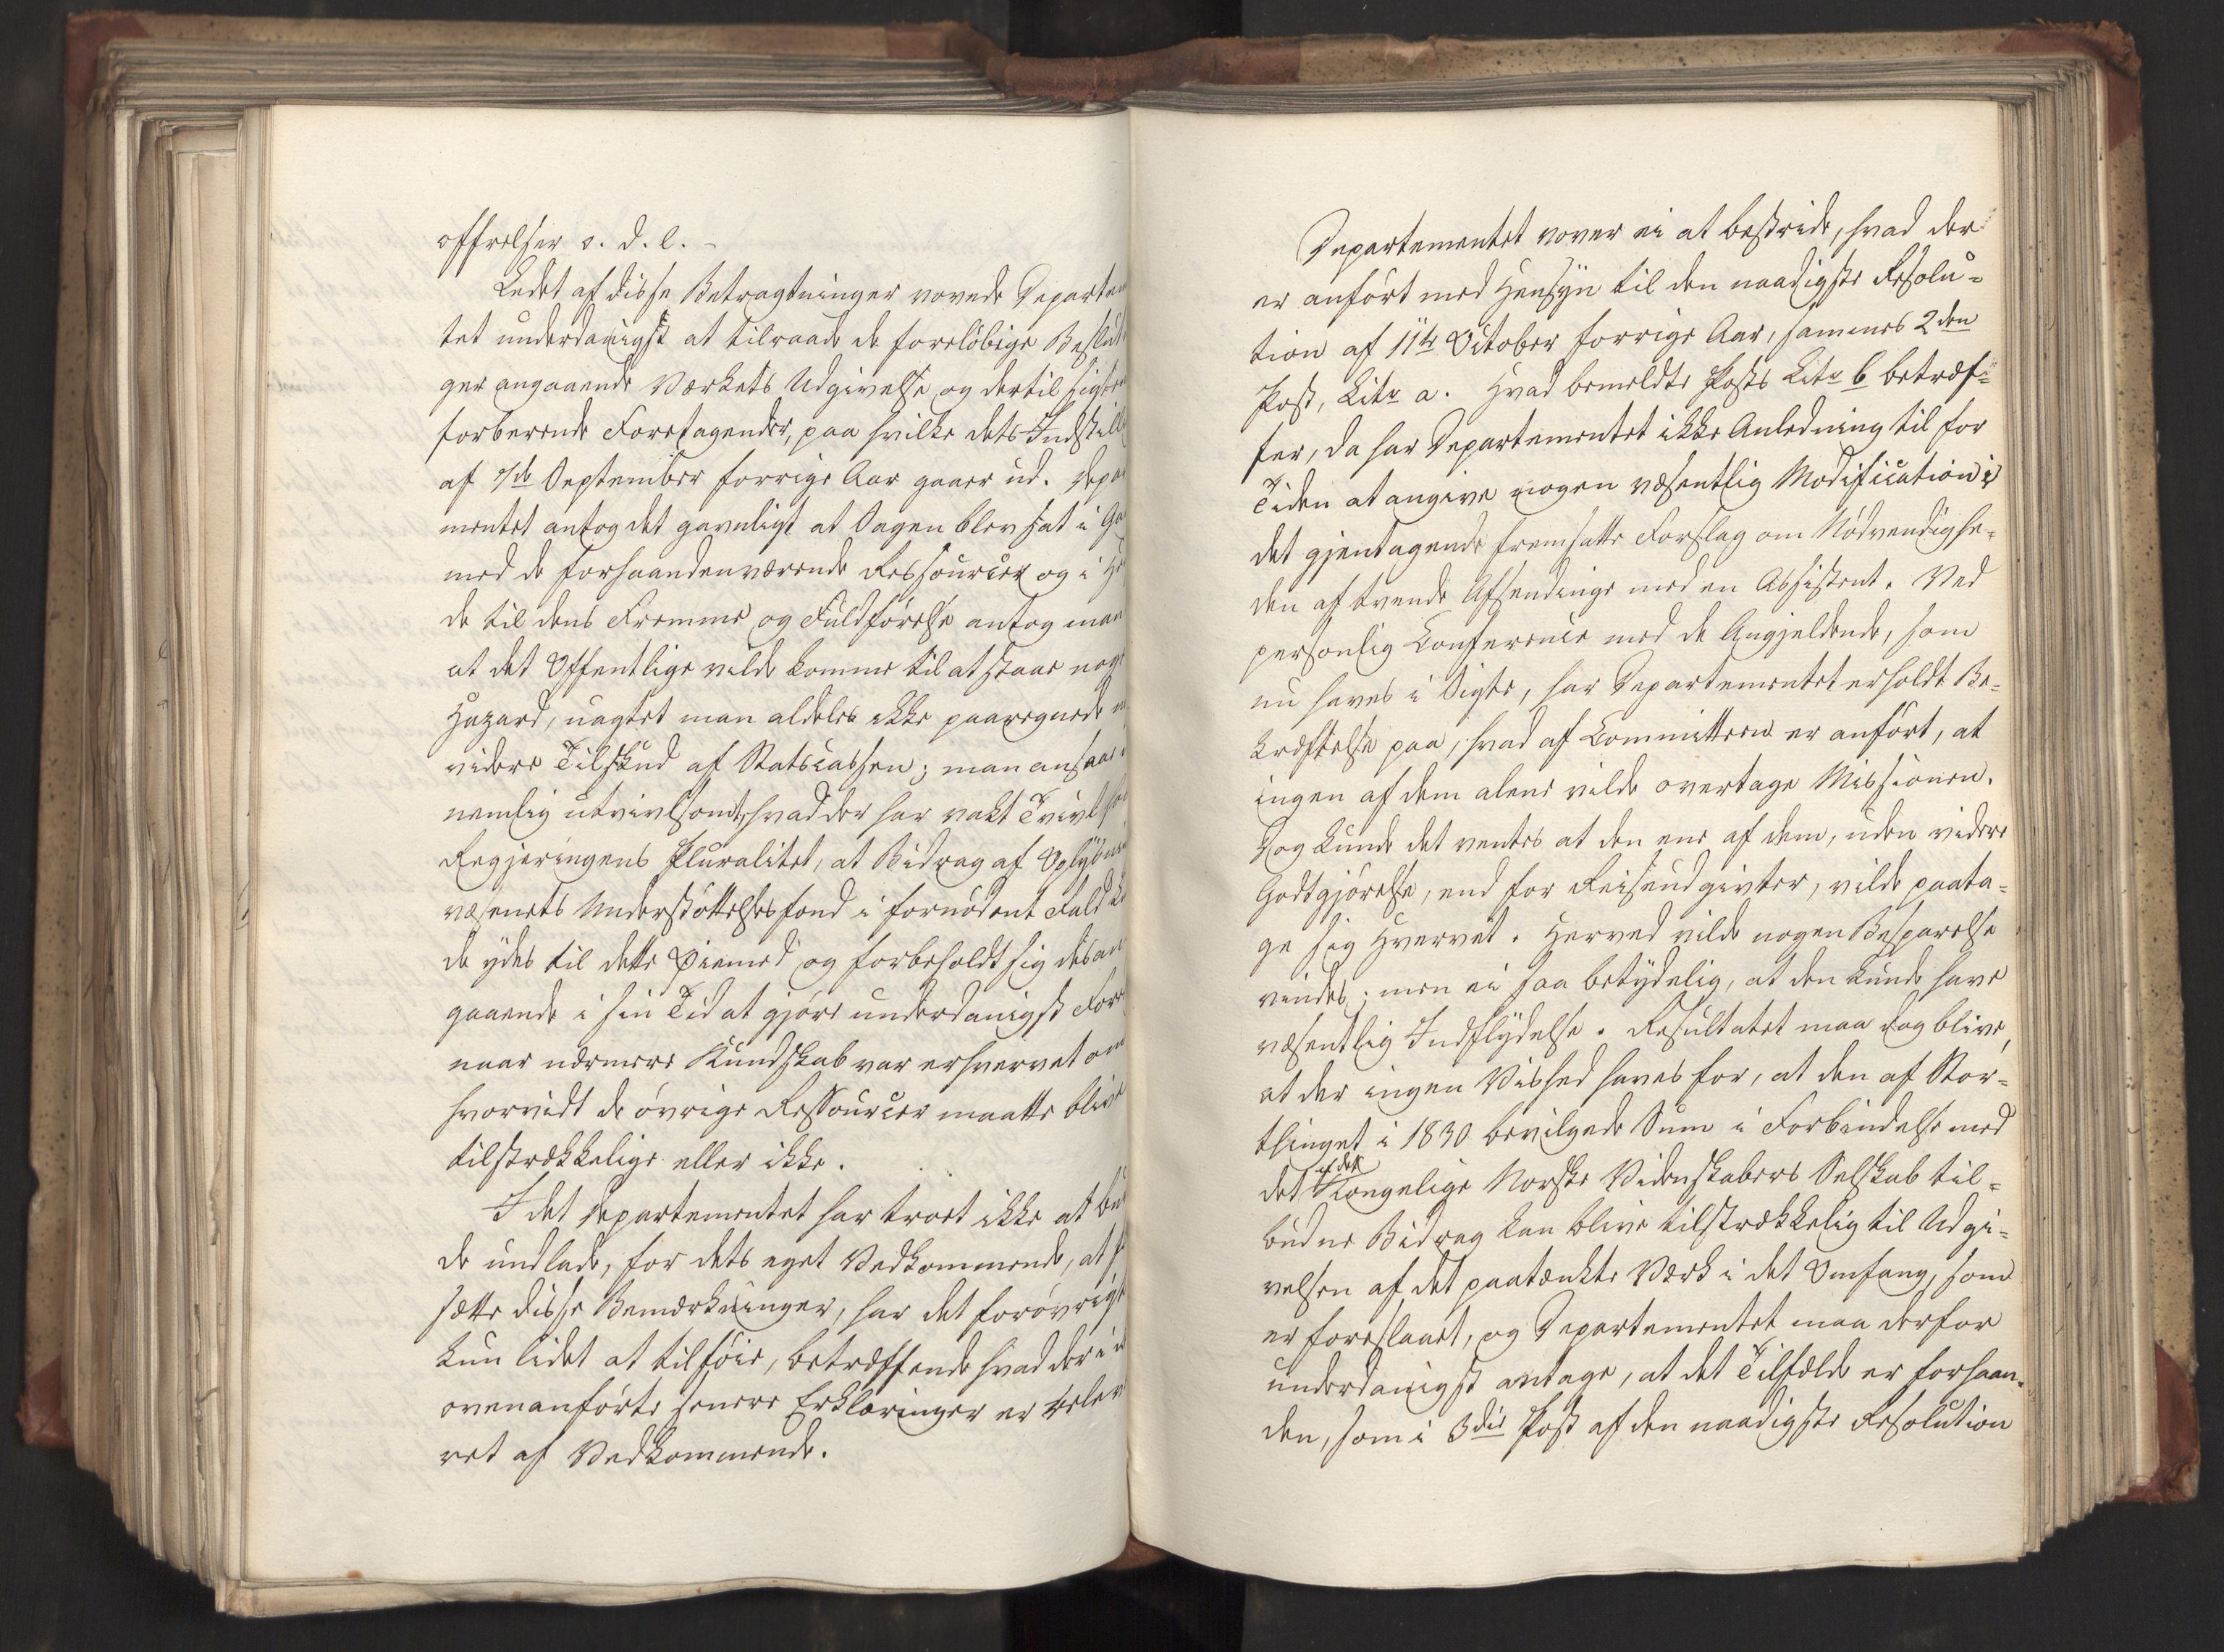 offrelser o. d. l. -
Ledet af disse Betragtninger vovede Departem
tet underdanigst at tilraade de foreløbige Beslut
ger angaaende Værkets Udgivelse og dertil sigten
forberende Foretagender, paa hvilke dets Indstill
af 7de September forrige Aar gaaer ud. Depar
mentet antog det gavnligt at Sagen blev sat i Ga
med de forhaandenværende Ressourcer og i He
de til dens Fremme og Fuldførelse antog man
at det Offentlige vilde komme til at staae nog
Hazard, uagtet man aldeles ikke paaregnede
videre Tilskud af Statscassen; man ansaae
nemlig utvivlsomt, hvad der har vakt Tvivl ho
Regjeringens Pluralitet, at Bidrag af Oplysni
væsenets Understøttelsesfond i fornødent Fald k
de ydes til dette Øiemed og forbeholdt sig desan
gaaende i sin Tid at gjøre underdanigst For
naar nærmere Kundskab var erhvervet om
hvorvidt de øvrige Ressourcer maatte blive
tilstrækkelige eller ikke.
I det Departementet har troet ikke at bu
de undlade, for dets eget Vedkommende, at
sætte disse Bemærkninger, har det forøvrigt
kun lidet at tilføie, betræffende hvad der i
ovenanførte senere Erklæringer er
ret af Vedkommende.
Departementet vover ei at bestride, hvad der
er anført med Hensyn til den naadigste Resolu-
tion af 11te October forrige Aar, sammes 2den
Post, Litr a. Hvad bemeldte Posts Litr b betræf-
fer, da har Departementet ikke Anledning til for
Tiden at angive nogen væsentlig Modification i
det gjentagende fremsatte Forslag om Nødvendighe-
den af tvende Afsendinge med en Assistent. Ved
personlig Conference med de Angjeldende, som
nu haves i Sigte, har Departementet erholdt Be-
kræftelse paa, hvad af Committeen er anført, at
ingen af dem alene vilde overtage Missionen.
Dog kunde det ventes at den ene af dem, uden videre
Godtgjørelse, end for Reiseudgivter, vilde paata-
ge sig Hvervet. Herved vilde nogen Besparelse
vindes; men ei saa betydelig, at den kunde have
væsentlig Indflydelse. Resultatet maa dog blive,
at der ingen Vished haves for, at den af Stor-
thinget i 1830 bevilgede Sum i Forbindelse med
det af det Kongelige Norske Videnskabers Selskab til-
budne Bidrag kan blive tilstrækkelig til Udgi-
velsen af det paatænkte Værk i det Omfang, som
er foreslaaet, og Departementet maa derfor
underdanigst antage, at det Tilfælde er forhaan-
den, som i 3die Post af den naadigste Resolution